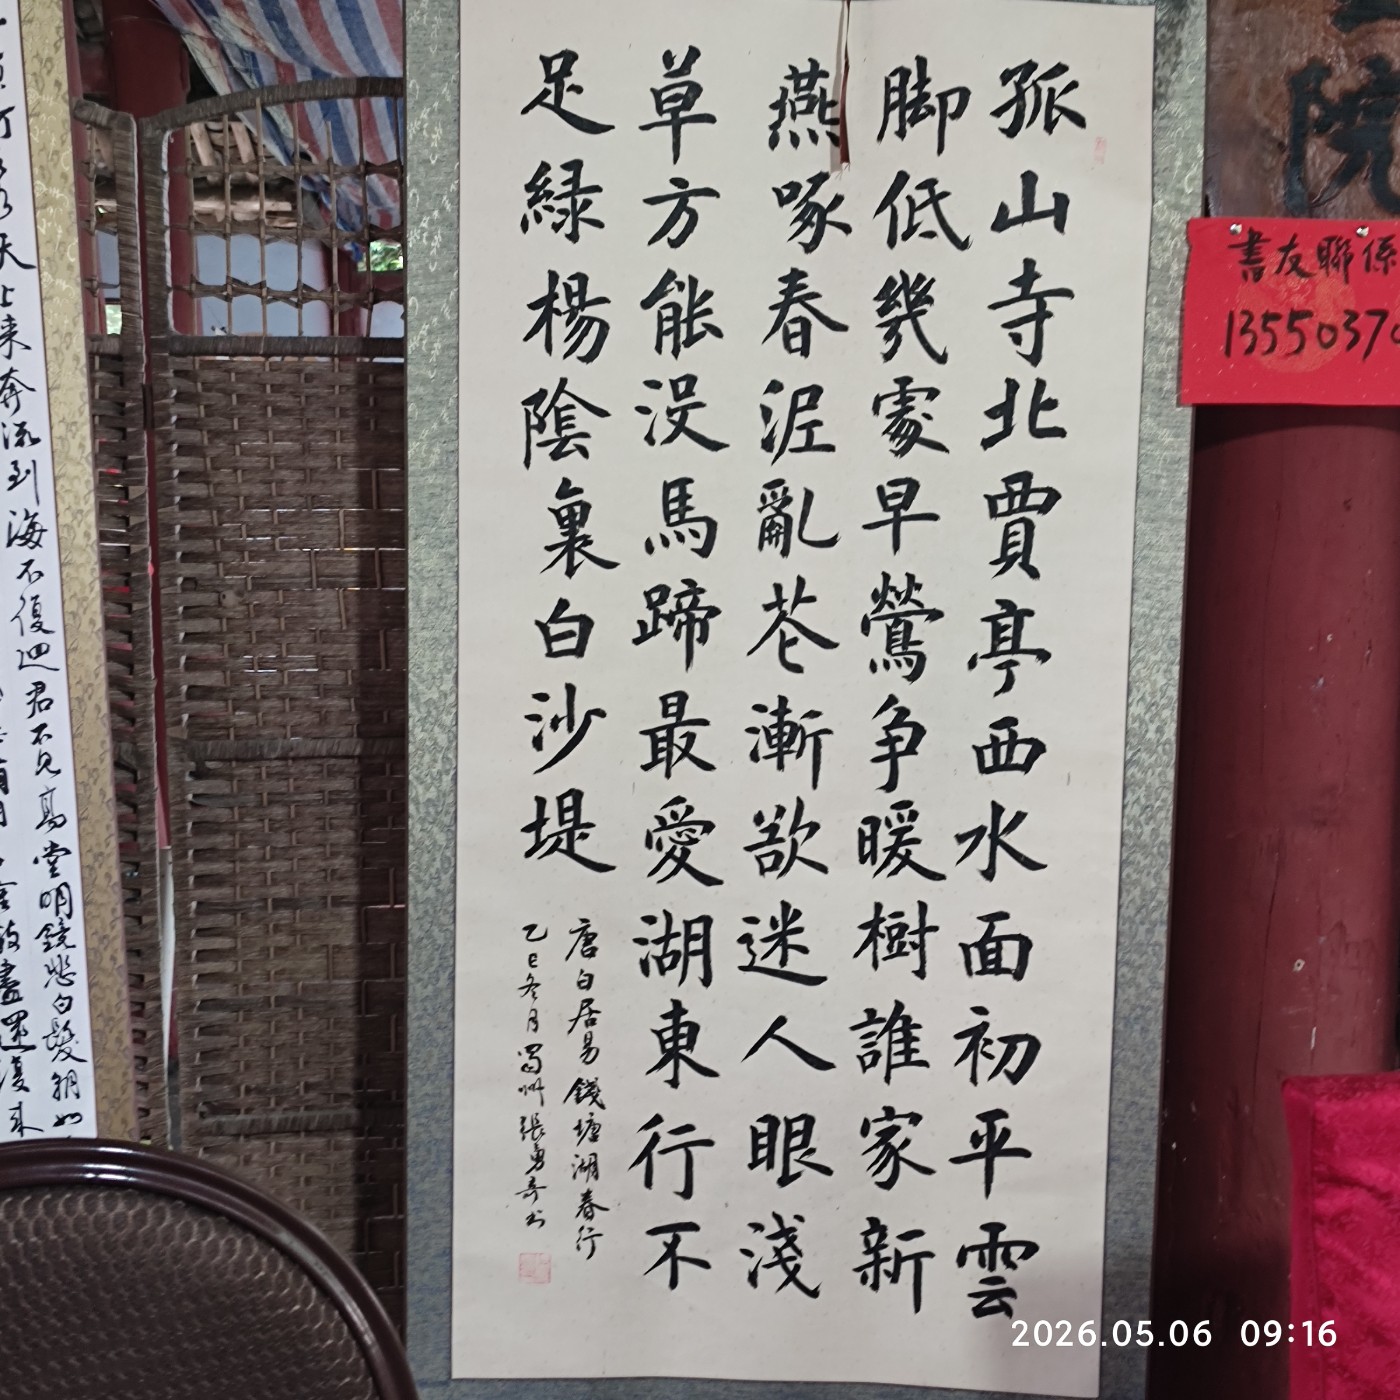 孤山寺北賈亭西水面初平雲
脚低幾處早鶯争暖樹誰家新
燕啄春泥亂花漸欲迷人眼淺
草方能没馬蹄最愛湖東行不
足緑楊陰裏白沙堤
唐白居易錢塘湖春行
乙巳冬月蜀州張勇奇书
院
書友聯係
1355037
天上来奔流到海不復迴君不见高堂明鏡悲白髮朝如
2026.05.06 09:16